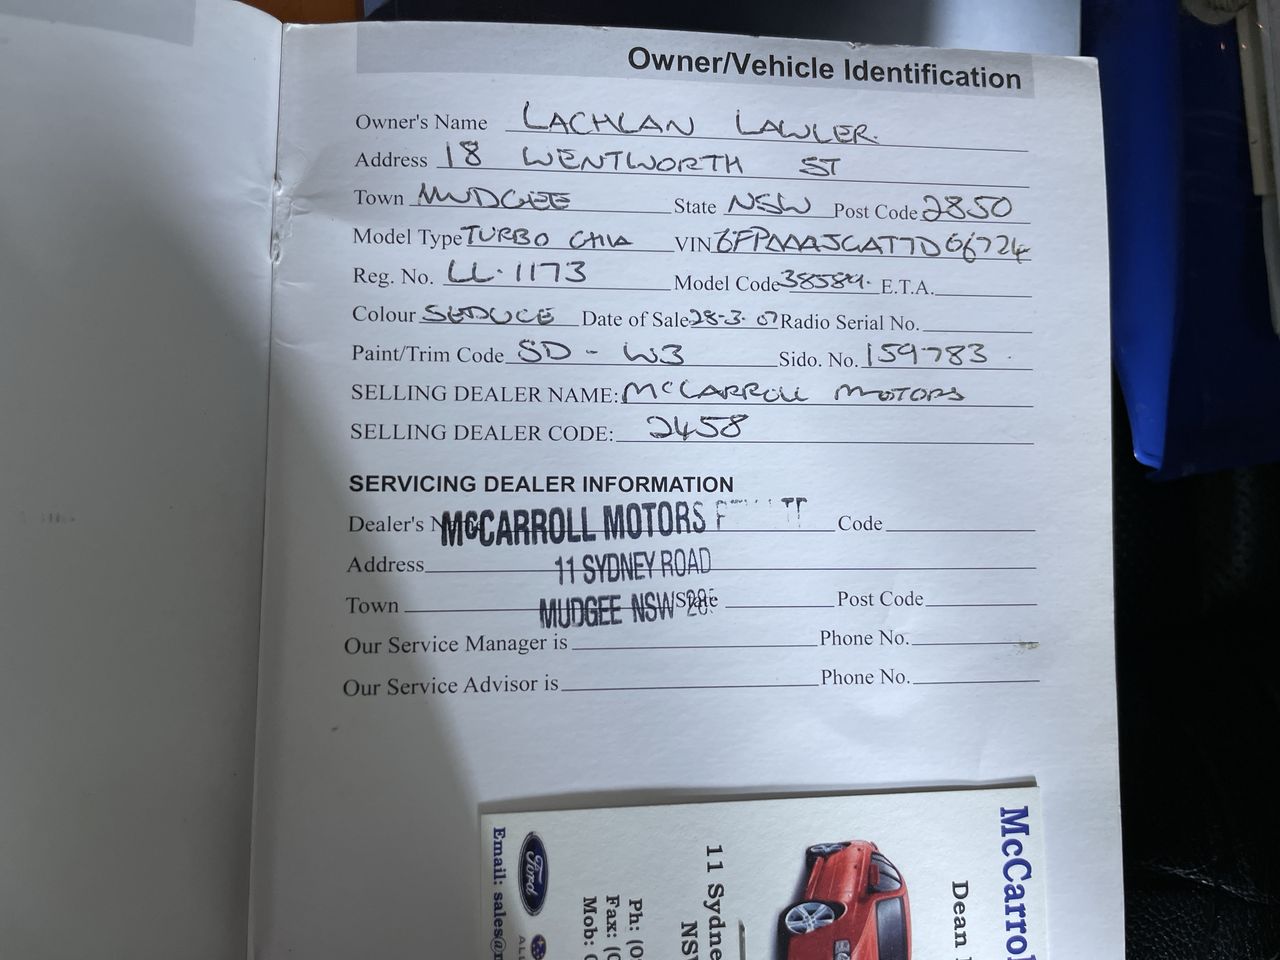 Owner/Vehicle Identification
Owner's Name LACHLAN LAWLER.
Address 18 WENTWORTH ST
Town MUDGEE State NSW Post Code 2850
Model Type TURBO GHIA VIN 6FPAAAJGAT7D66724
Reg. No. LL·1173 Model Code 38584. E.T.A.
Colour SEDUCE Date of Sale 28-3-07 Radio Serial No.
Paint/Trim Code SD - W3 Sido. No. 159783
SELLING DEALER NAME: McCARROLL MOTORS
SELLING DEALER CODE: 2458
SERVICING DEALER INFORMATION
Dealer's Name McCARROLL MOTORS Code
Address 11 SYDNEY ROAD
Town MUDGEE NSW State Post Code
Our Service Manager is Phone No.
Our Service Advisor is Phone No.
McCarrol
Dean
11 Sydne
NS
Ph: (0
Fax: (0
Mob: 0
Ford
Email: sales@